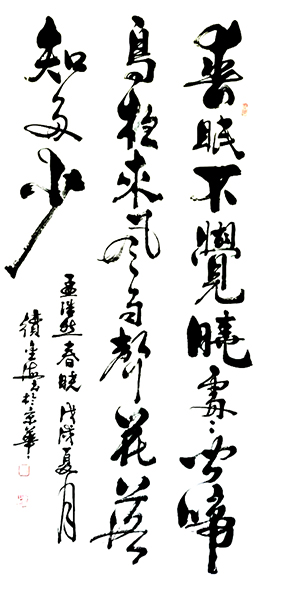 春眠不覺曉處々聞啼
鳥夜來風雨聲花落
知多少
孟浩然春曉戊戌夏月
於京華